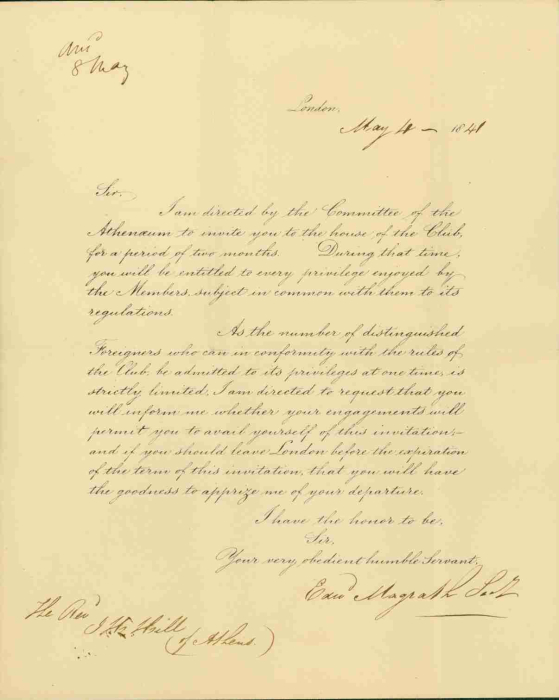 Ans'd
8 May
London,
May 4 – 1841
Sir,
I am directed by the Committee of the
Athenæum to invite you to the house of the Club,
for a period of two months. During that time,
you will be entitled to every privilege enjoyed by
the Members, subject in common with them to its
regulations.
As the number of distinguished
Foreigners who can in conformity with the rules of
the Club, be admitted to its privileges at one time, is
strictly limited, I am directed to request that you
will inform me whether your engagements will
permit you to avail yourself of this invitation,–
and if you should leave London before the expiration
of the term of this invitation, that you will have
the goodness to apprize me of your departure.
I have the honor to be,
Sir,
Your very obedient humble Servant,
Edwd Magrath Sect
The Rev
J Hill
(of Athens)